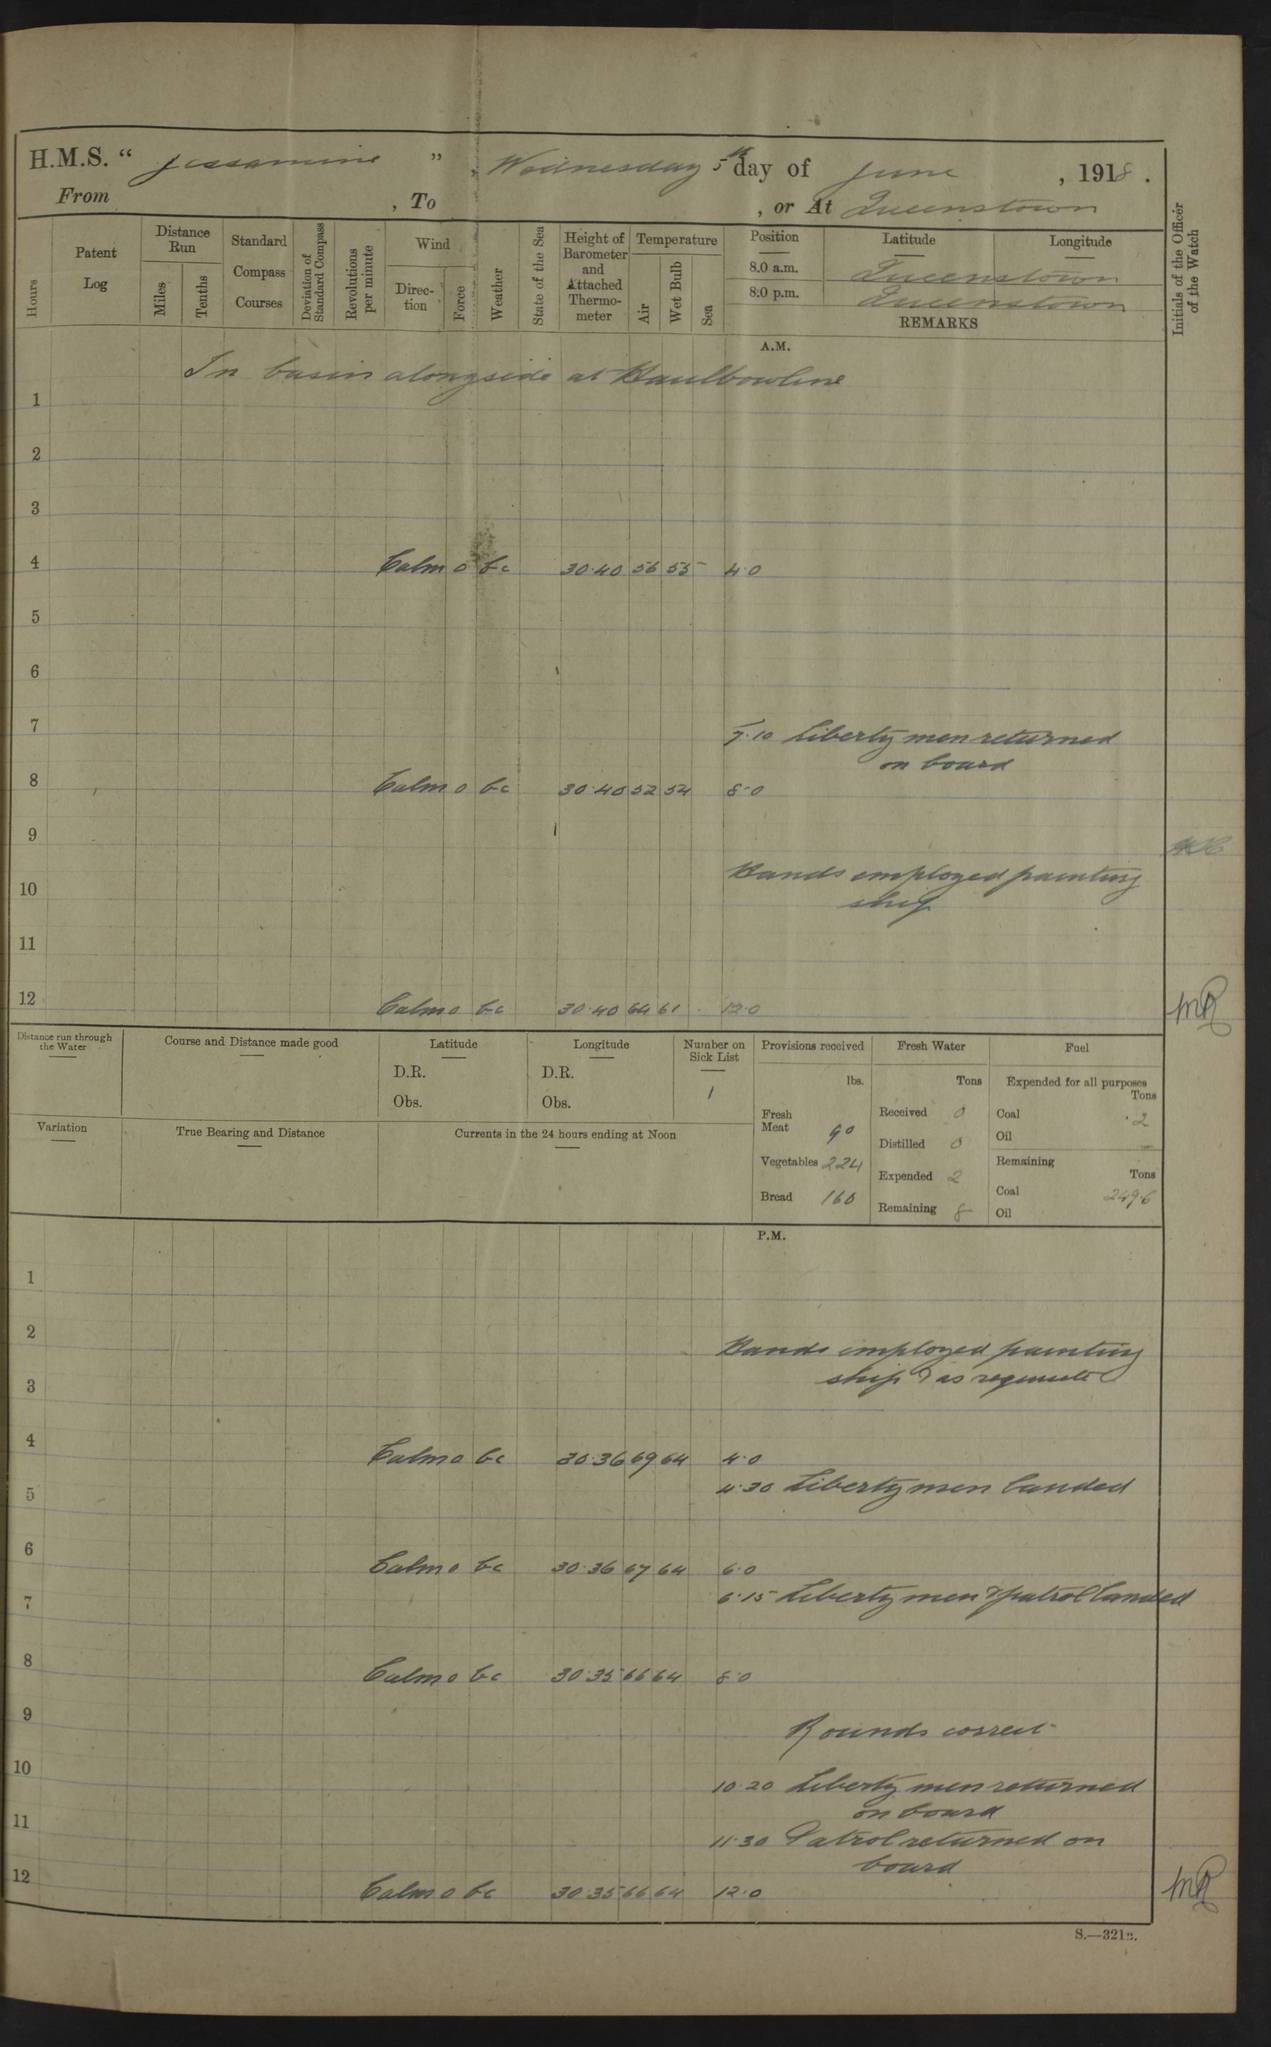 H.M.S. “ Jessamine ” , Wednesday 5th day of June , 1918 .
From , To , or At Queenstown
Hours
Patent Log
Distance Run
Miles
Tenths
Standard Compass Courses
Deviation of Standard Compass
Revolutions per minute
Wind
Direc- tion
Force
Weather
State of the Sea
Height of Barometer and Attached Thermo- meter
Temperature
Air
Wet Bulb
Sea
Position Latitude Longitude
8.0 a.m. Queenstown
8.0 p.m. Queenstown
REMARKS
Initials of the Officer of the Watch
A.M.
In basin alongside at Haulbowline
1
2
3
4 Calm 0 bc 30.40 56 55 4.0
5
6
7 7.10 Liberty men returned
on board
8 Calm 0 bc 30.40 52 54 8.0
9
10 Hands employed painting
ship
11
12 Calm 0 bc 30.40 64 61 12.0 MR
Distance run through the Water
Course and Distance made good
Latitude
D.R.
Obs.
Longitude
D.R.
Obs.
Number on Sick List
1
Variation
True Bearing and Distance
Currents in the 24 hours ending at Noon
Provisions received
lbs.
Fresh Meat 90
Vegetables 224
Bread 160
Fresh Water
Tons
Received 0
Distilled 0
Expended 2
Remaining 8
Fuel
Expended for all purposes
Tons
Coal .2
Oil
Remaining
Tons
Coal 249.6
Oil
P.M.
1
2 Hands employed painting
3 ship & as requisite
4 Calm 0 bc 30.36 69 64 4.0
4.30 Liberty men landed
5
6 Calm 0 bc 30.36 67 64 6.0
6.15 Liberty men & patrol landed
7
8 Calm 0 bc 30.35 66 64 8.0
9 Rounds correct
10 10.20 Liberty men returned
on board
11 11.30 Patrol returned on
board
12 Calm 0 bc 30.35 66 64 12.0 MR
S.—321